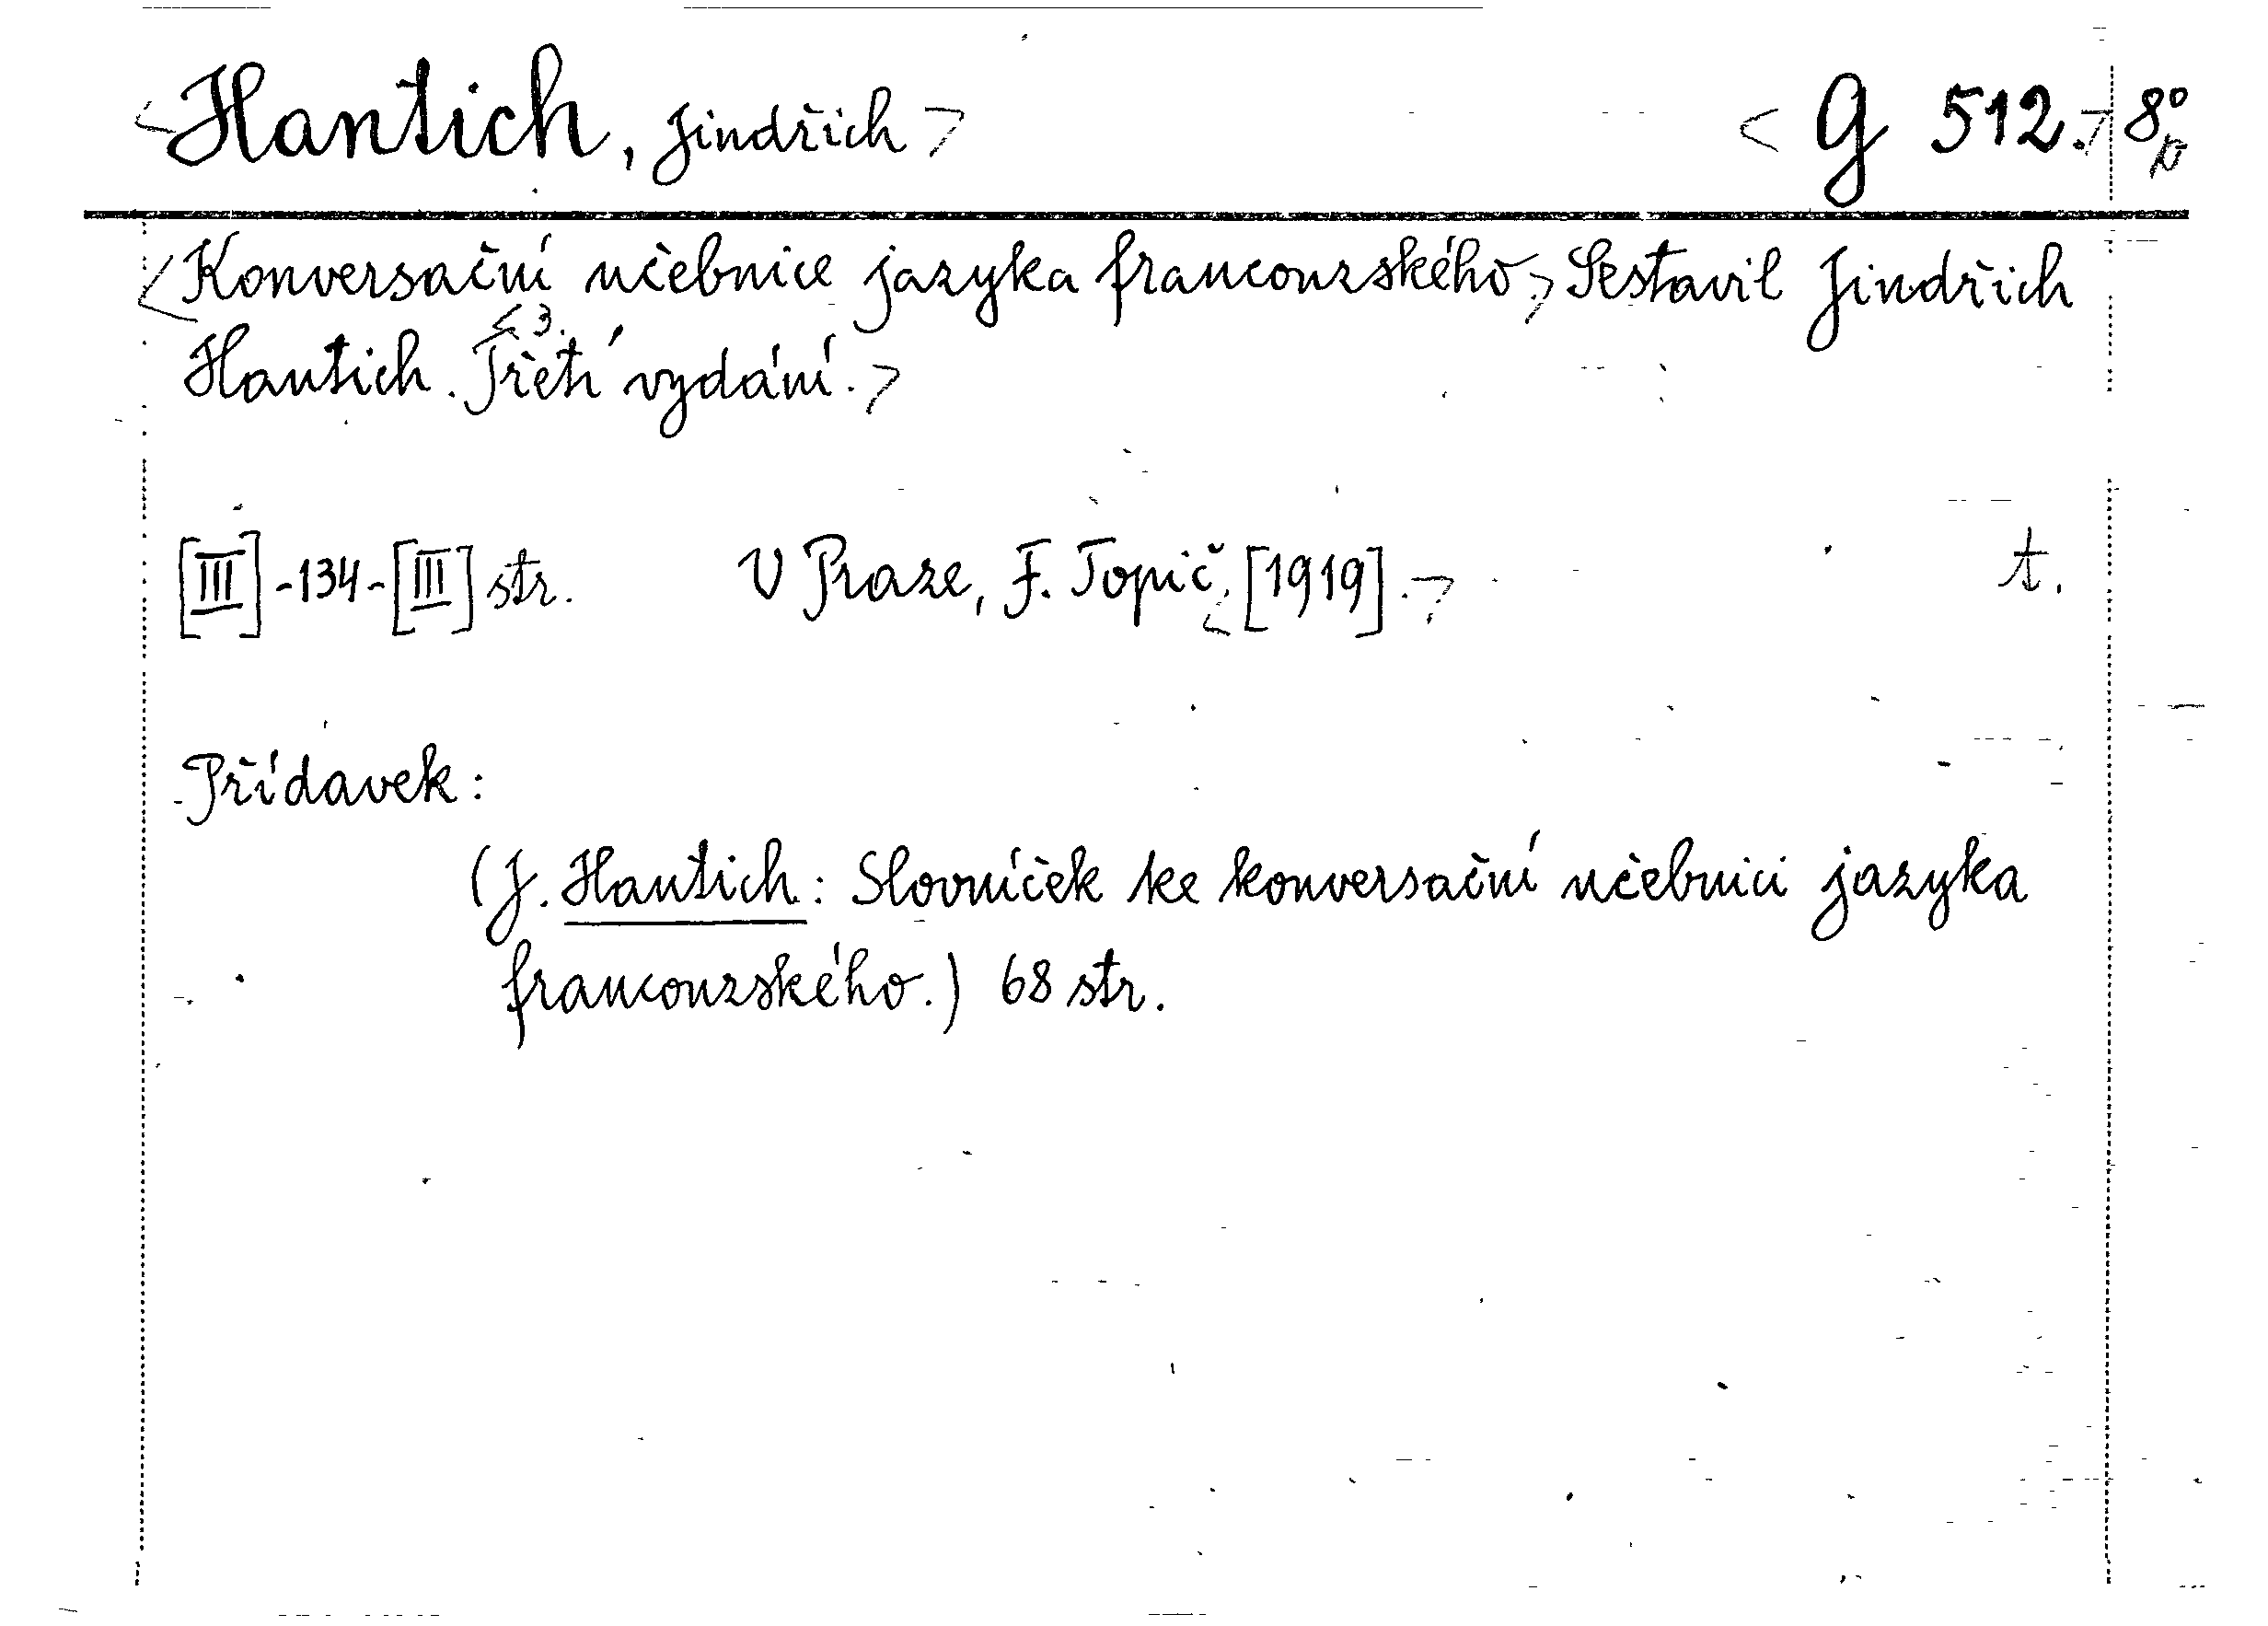 <Hantich, Jindřich> <G 512.> 8°
<Konversační učebnice jazyka francouzského.> Sestavil Jindřich
<3.
Hantich. Třetí vydání.>
[III]-134-[III] str. V Praze, F. Topič, <[1919].> t.
Přídavek:
(J. Hantich: Slovníček ke konversační učebnici jazyka
francouzského.) 68 str.